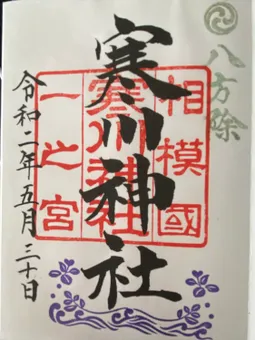 八方除
寒川神社
相模國
寒川神社
一之宮
令和二年五月三十日